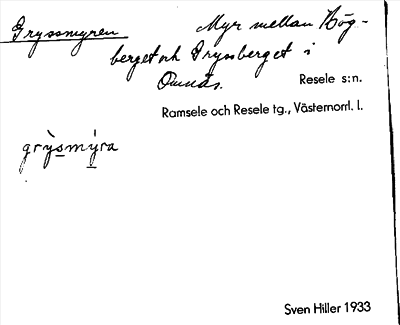 Gryssmyren Myr mellan Hög-
berget och Gryssberget i
Omnäs. Resele s:n.
Ramsele och Resele tg., Västernorrl. l.
grỳsmýra
Sven Hiller 1933